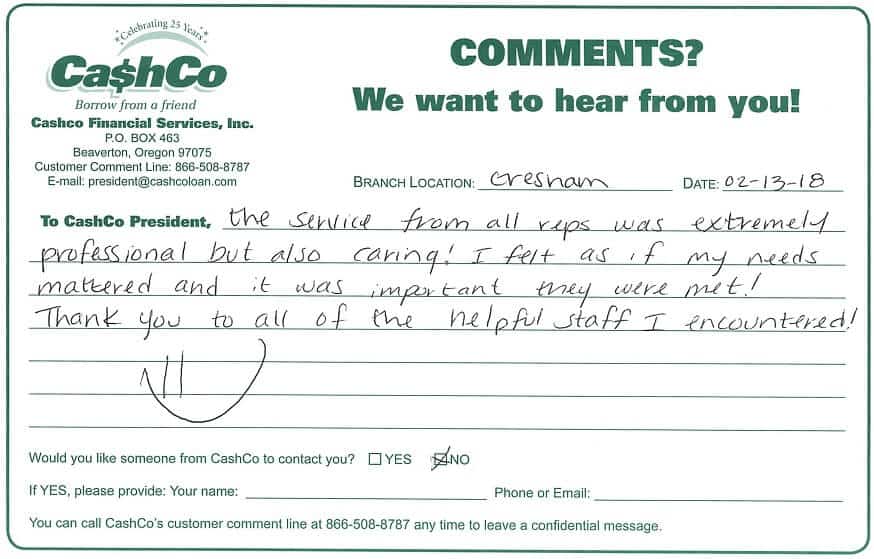 Celebrating 25 Years
Ca$hCo
Borrow from a friend
Cashco Financial Services, Inc.
P.O. BOX 463
Beaverton, Oregon 97075
Customer Comment Line: 866-508-8787
E-mail: president@cashcoloan.com
COMMENTS?
We want to hear from you!
BRANCH LOCATION: Gresham DATE: 02-13-18
To CashCo President, the service from all reps was extremely
professional but also caring! I felt as if my needs
mattered and it was important they were met!
Thank you to all of the helpful staff I encountered!
Would you like someone from CashCo to contact you? YES NO
If YES, please provide: Your name: Phone or Email:
You can call CashCo's customer comment line at 866-508-8787 any time to leave a confidential message.